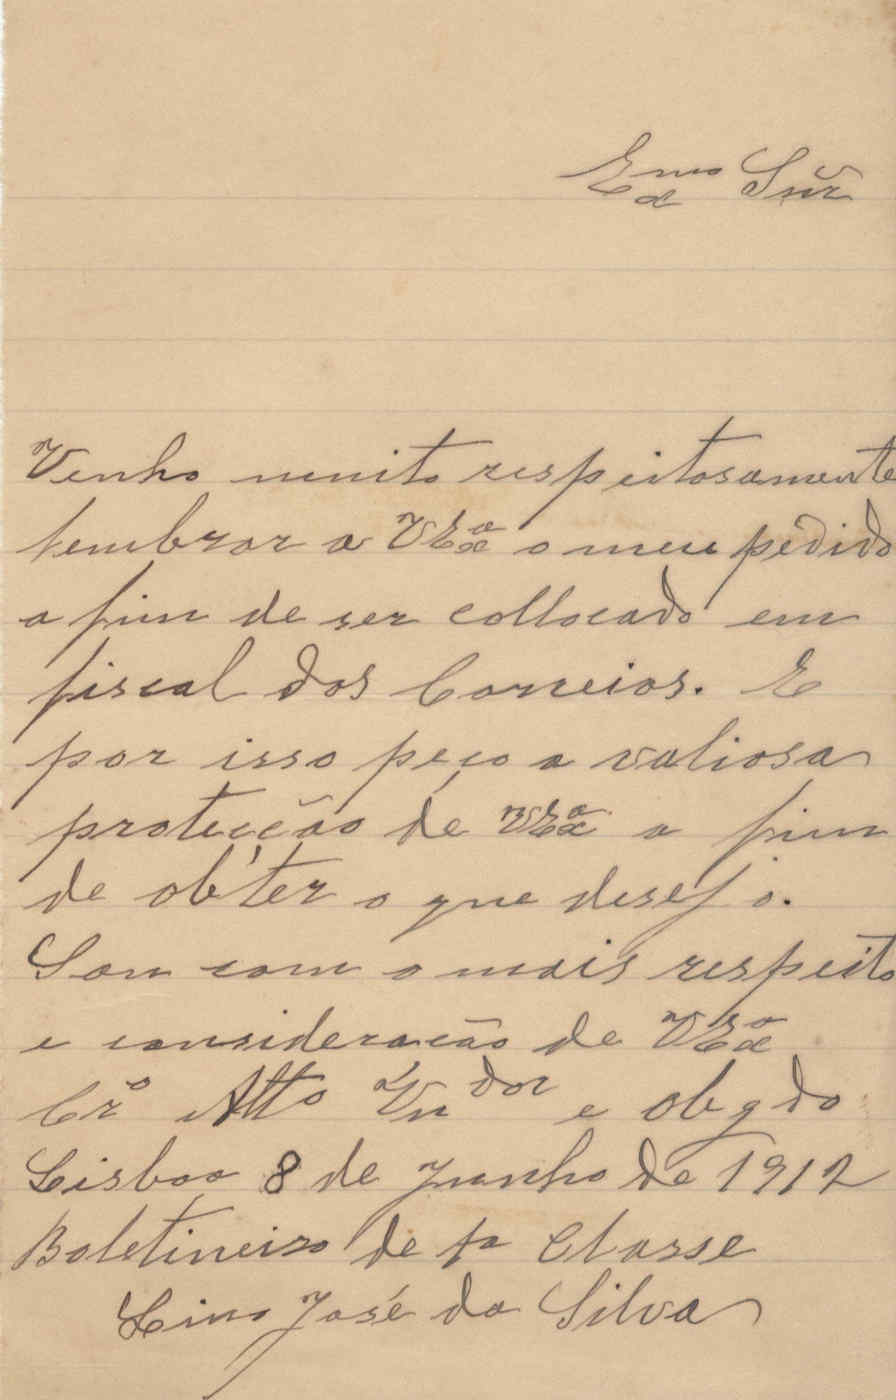 Exmo Snr
Venho muito respeitosamente
lembrar a V Exa o meu pedido
a fim de ser collocado em
fiscal dos Correios. E
por isso peço a valiosa
protecção de V Exa a fim
de obter o que desejo.
Sou com o mais respeito
e consideração de V Exa
Cro Atto Vndor e obgdo
Lisboa 8 de Junho de 1912
Boletineiro de 1a Classe
Lino José da Silva